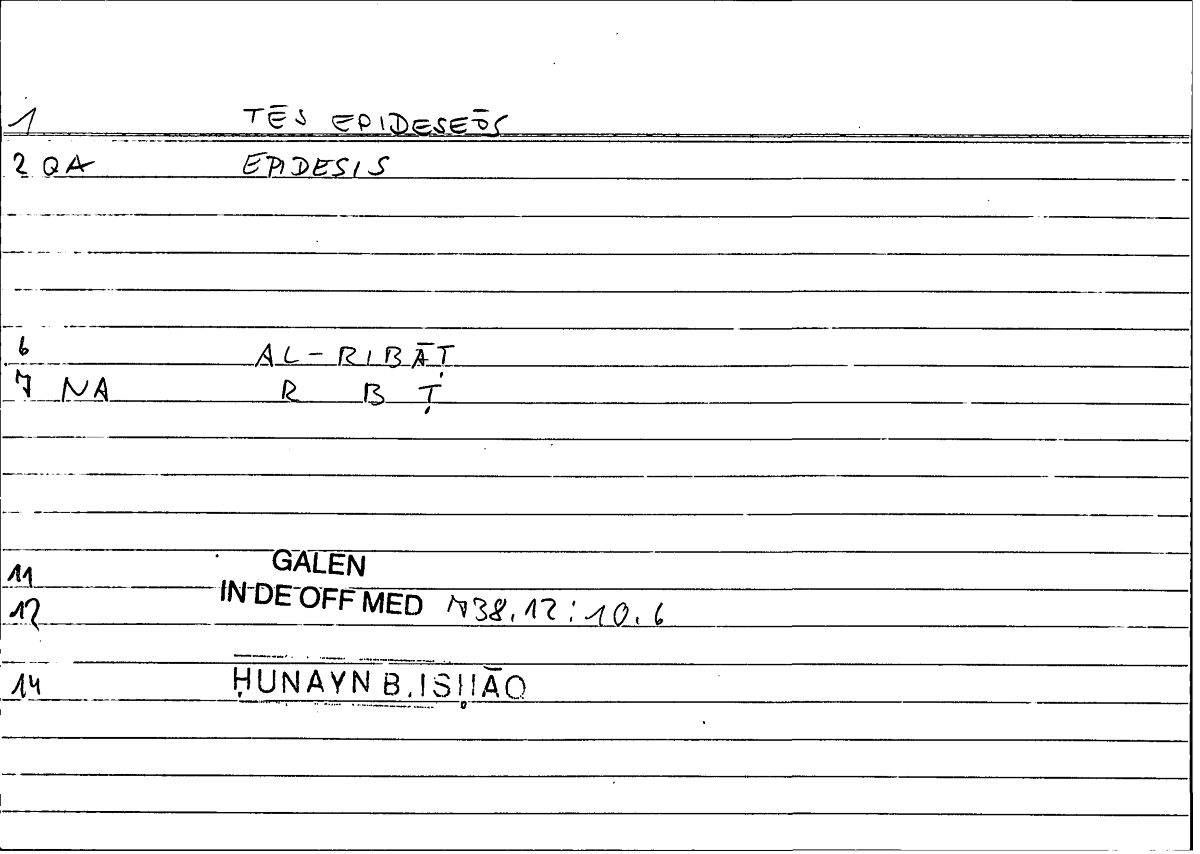 1 TĒS EPIDESEŌS
2 QA EPIDESIS
6 AL-RIBĀṬ
7 NA R B Ṭ
11 GALEN
12 IN DE OFF MED 738.12:10.6
14 ḤUNAYN B. ISḤĀQ